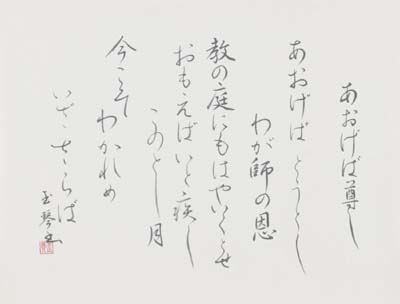 あおげば尊し
あおげば とうとし
わが師の恩
教の庭にもはやいくとせ
おもえばいと疾し
このとし月
今こそ
わかれめ
いざ、さらば
玉琴書